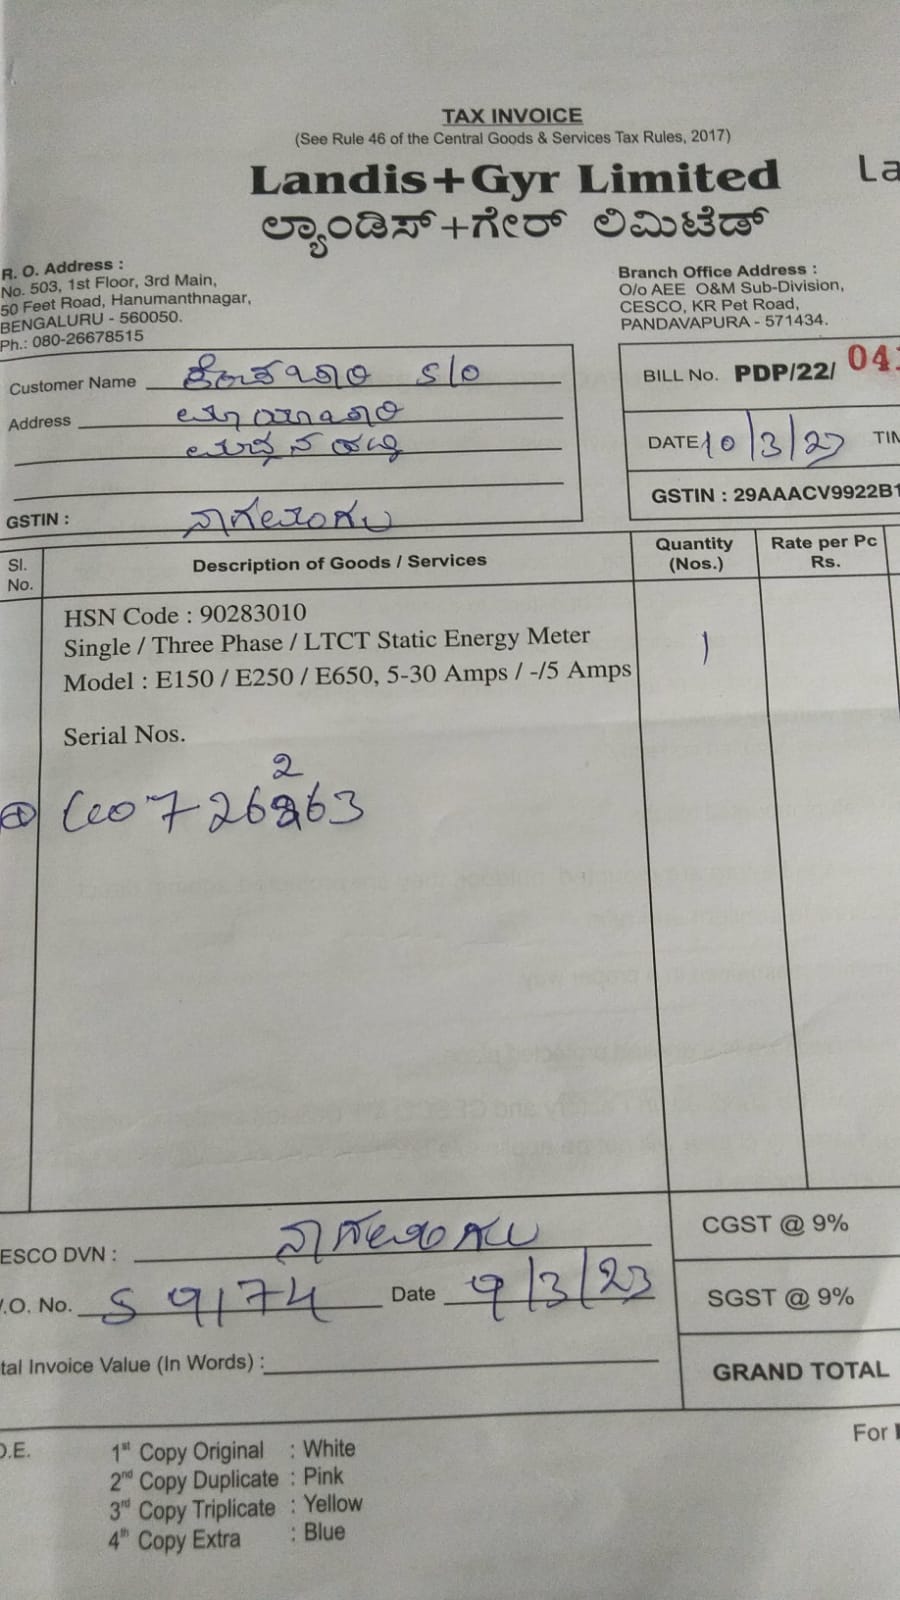 TAX INVOICE
(See Rule 46 of the Central Goods & Services Tax Rules, 2017)
Landis+Gyr Limited
La
ಲ್ಯಾಂಡಿಸ್+ಗೇರ್ ಲಿಮಿಟೆಡ್
R. O. Address :
No. 503, 1st Floor, 3rd Main,
50 Feet Road, Hanumanthnagar,
BENGALURU - 560050.
Ph.: 080-26678515
Branch Office Address :
O/o AEE O&M Sub-Division,
CESCO, KR Pet Road,
PANDAVAPURA - 571434.
Customer Name S/o
Address
GSTIN : ನಾಗಮಂಗಲ
BILL No. PDP/22/ 04
DATE 10/3/23 TIM
GSTIN : 29AAACV9922B1
Sl. No.
Description of Goods / Services
Quantity (Nos.)
Rate per Pc Rs.
HSN Code : 90283010
Single / Three Phase / LTCT Static Energy Meter
1
Model : E150 / E250 / E650, 5-30 Amps / -/5 Amps
Serial Nos.
2
ESCO DVN : ನಾಗಮಂಗಲ
CGST @ 9%
.O. No. S 9174 Date 9/3/23
SGST @ 9%
tal Invoice Value (In Words) :
GRAND TOTAL
O.E.
For
1st Copy Original : White
2nd Copy Duplicate : Pink
3rd Copy Triplicate : Yellow
4th Copy Extra : Blue